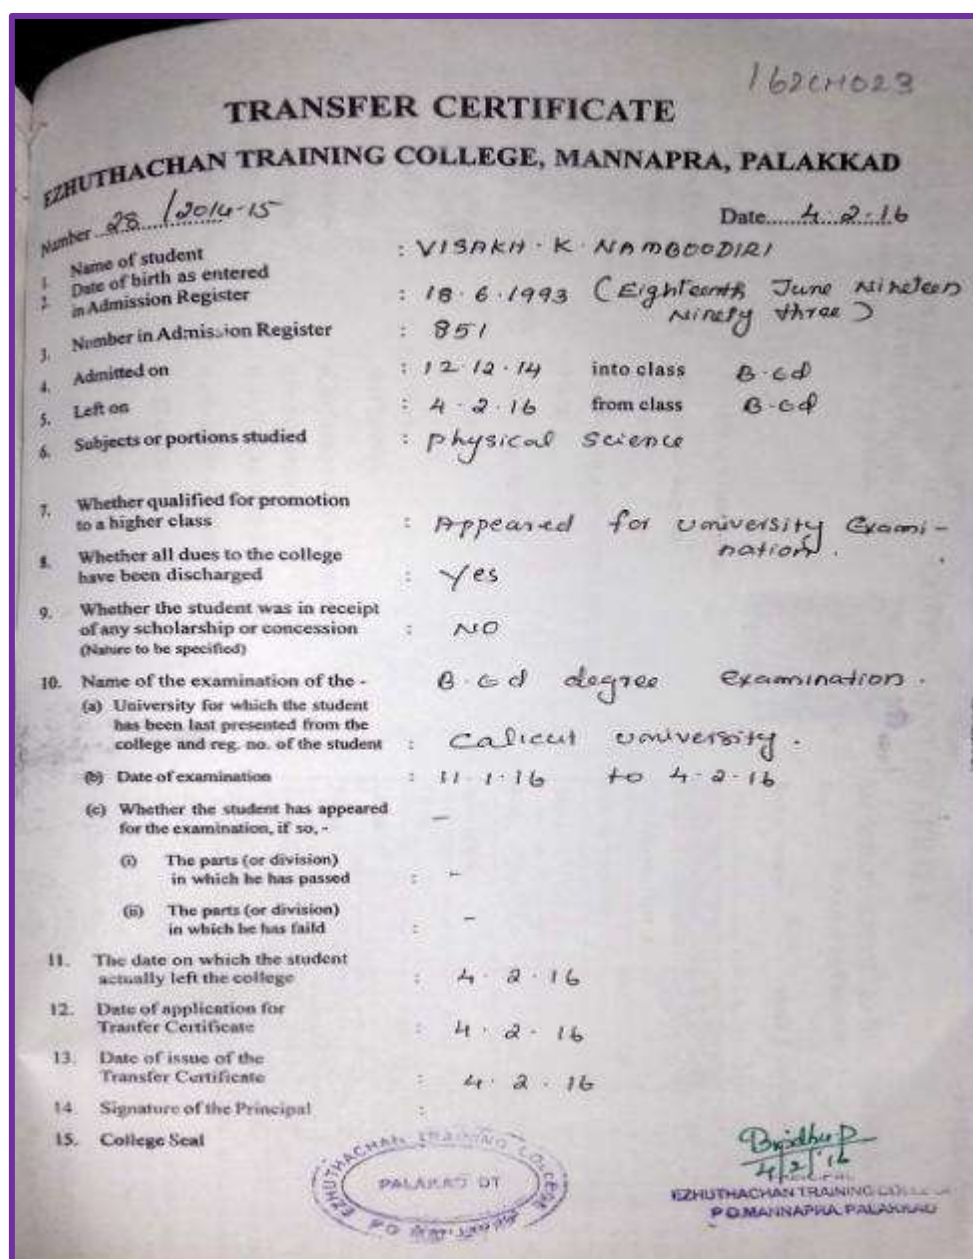 162CH023
TRANSFER CERTIFICATE
EZHUTHACHAN TRAINING COLLEGE, MANNAPRA, PALAKKAD
Number 28/2014-15 Date 4.2.16
1. Name of student : VISAKH.K.NAMBOODIRI
2. Date of birth as entered
in Admission Register : 18.6.1993 (Eighteenth June Nineteen
Ninety three)
3. Number in Admission Register : 851
4. Admitted on : 12.12.14 into class B.Ed
5. Left on : 4.2.16 from class B.Ed
6. Subjects or portions studied : physical science
7. Whether qualified for promotion
to a higher class : Appeared for university Exami-
nation.
8. Whether all dues to the college
have been discharged : Yes
9. Whether the student was in receipt
of any scholarship or concession : NO
(Nature to be specified)
10. Name of the examination of the - B.Ed degree Examination.
(a) University for which the student
has been last presented from the
college and reg. no. of the student : Calicut university.
(b) Date of examination : 11.1.16 to 4.2.16
(c) Whether the student has appeared -
for the examination, if so, -
(i) The parts (or division)
in which he has passed : -
(ii) The parts (or division)
in which he has faild : -
11. The date on which the student
actually left the college : 4.2.16
12. Date of application for
Tranfer Certificate : 4.2.16
13. Date of issue of the
Transfer Certificate : 4.2.16
14. Signature of the Principal :
15. College Seal
EZHUTHACHAN TRAINING COLLEGE
PALAKAD DT
4/2/16
EZHUTHACHAN TRAINING COLLEGE
P.O.MANNAPRA, PALAKKAD